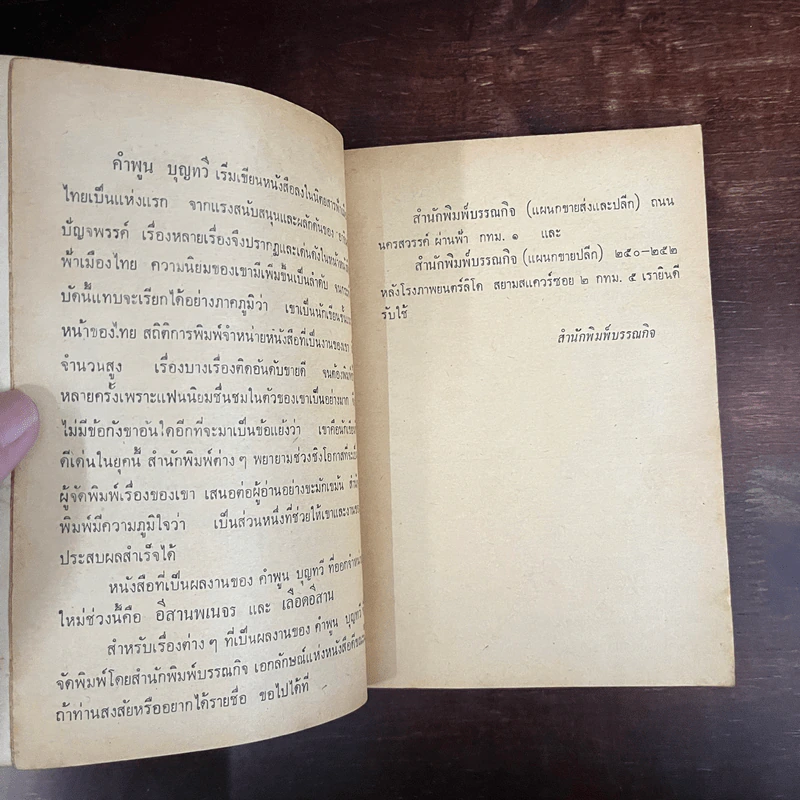 คำพูน บุญทวี เริ่มเขียนหนังสือลงในนิตยสารฟ้าเมือง
ไทยเป็นแห่งแรก จากแรงสนับสนุนและผลักดันของ อาจินต์
ปัญจพรรค์ เรื่องหลายเรื่องจึงปรากฏและเด่นดังในหน้าหนังสือ
ฟ้าเมืองไทย ความนิยมของเขามีเพิ่มขึ้นเป็นลำดับ จนกระ
บัดนี้แทบจะเรียกได้อย่างภาคภูมิว่า เขาเป็นนักเขียนชั้นแนว
หน้าของไทย สถิติการพิมพ์จำหน่ายหนังสือที่เป็นงานของเขา
จำนวนสูง เรื่องบางเรื่องติดอันดับขายดี จนต้องพิมพ์
หลายครั้งเพราะแฟนนิยมชื่นชมในตัวของเขาเป็นอย่างมาก
ไม่มีข้อกังขาอันใดอีกที่จะมาเป็นข้อแย้งว่า เขาคือนักเขียน
ดีเด่นในยุคนี้ สำนักพิมพ์ต่าง ๆ พยายามช่วงชิงโอกาสที่จะ
ผู้จัดพิมพ์เรื่องของเขา เสนอต่อผู้อ่านอย่างขะมักเขม้น สำนัก
พิมพ์มีความภูมิใจว่า เป็นส่วนหนึ่งที่ช่วยให้เขาและงาน
ประสบผลสำเร็จได้
หนังสือที่เป็นผลงานของ คำพูน บุญทวี ที่ออกจำหน่าย
ใหม่ช่วงนี้คือ อีสานพเนจร และ เลือดอีสาน
สำหรับเรื่องต่าง ๆ ที่เป็นผลงานของ คำพูน บุญทวี
จัดพิมพ์โดยสำนักพิมพ์บรรณกิจ เอกลักษณ์แห่งหนังสือดี
ถ้าท่านสงสัยหรืออยากได้รายชื่อ ขอไปได้ที่
สำนักพิมพ์บรรณกิจ (แผนกขายส่งและปลีก) ถนน
นครสวรรค์ ผ่านฟ้า กทม. ๑ และ
สำนักพิมพ์บรรณกิจ (แผนกขายปลีก) ๒๕๐–๒๕๒
หลังโรงภาพยนตร์ลิโด สยามสแควร์ซอย ๒ กทม. ๕ เรายินดี
รับใช้
สำนักพิมพ์บรรณกิจ